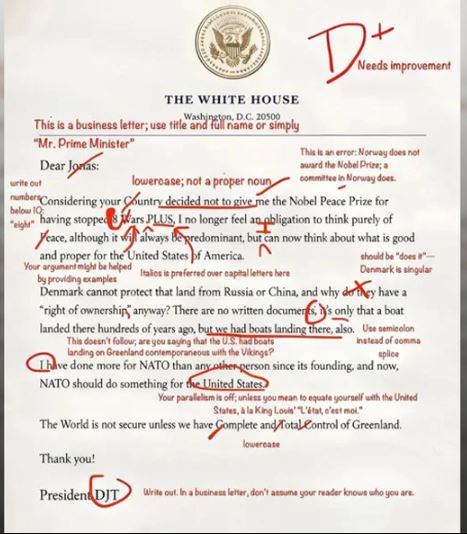 D+
Needs improvement
THE WHITE HOUSE
Washington, D.C. 20500
This is a business letter; use title and full name or simply
"Mr. Prime Minister"
This is an error: Norway does not
award the Nobel Prize; a
committee in Norway does.
Dear Jonas:
lowercase; not a proper noun
write out
numbers
below 10:
"eight"
Considering your Country decided not to give me the Nobel Peace Prize for
having stopped 8 Wars PLUS, I no longer feel an obligation to think purely of
Peace, although it will always be predominant, but can now think about what is good
I
and proper for the United States of America.
should be "does it"—
Denmark is singular
Your argument might be helped
by providing examples
Italics is preferred over capital letters here
Denmark cannot protect that land from Russia or China, and why do they have
a "right of ownership" anyway? There are no written documents, it's only that a boat
landed there hundreds of years ago, but we had boats landing there, also.
Use semicolon
instead of comma
splice
This doesn't follow; are you saying that the U.S. had boats
landing on Greenland contemporaneous with the Vikings?
I have done more for NATO than any other person since its founding, and now,
NATO should do something for the United States.
Your parallelism is off; unless you mean to equate yourself with the United
States, à la King Louis' "L'état, c'est moi."
The World is not secure unless we have Complete and Total Control of Greenland.
lowercase
Thank you!
President DJT
Write out. In a business letter, don't assume your reader knows who you are.